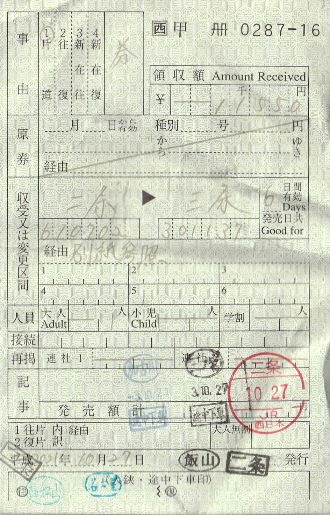 西 甲 冊 0287-16
事由
① 片道
2 往復
3 新在往
4 新在往復
券
領収額 Amount Received
千 円
¥ 11550
原券
月 日から有効 種別 号 円
から ゆき
経由
収受又は変更区間
二条 ▶ 二条 6 日間有効 Days
発売日共 Good for
610702 301137
経由 別紙参照
1 2 3
4 5 6
人員 大人 Adult 人 小児 Child 人 学割 人
接続
再掲 連社 1
記事
3.10.27
途中下車
二条
10.27
JR西日本
発売額計
大人無割
1 往片 2 復片 内訳 経由
平成 年 10月 27日 飯山 二条 発行
途中下車印